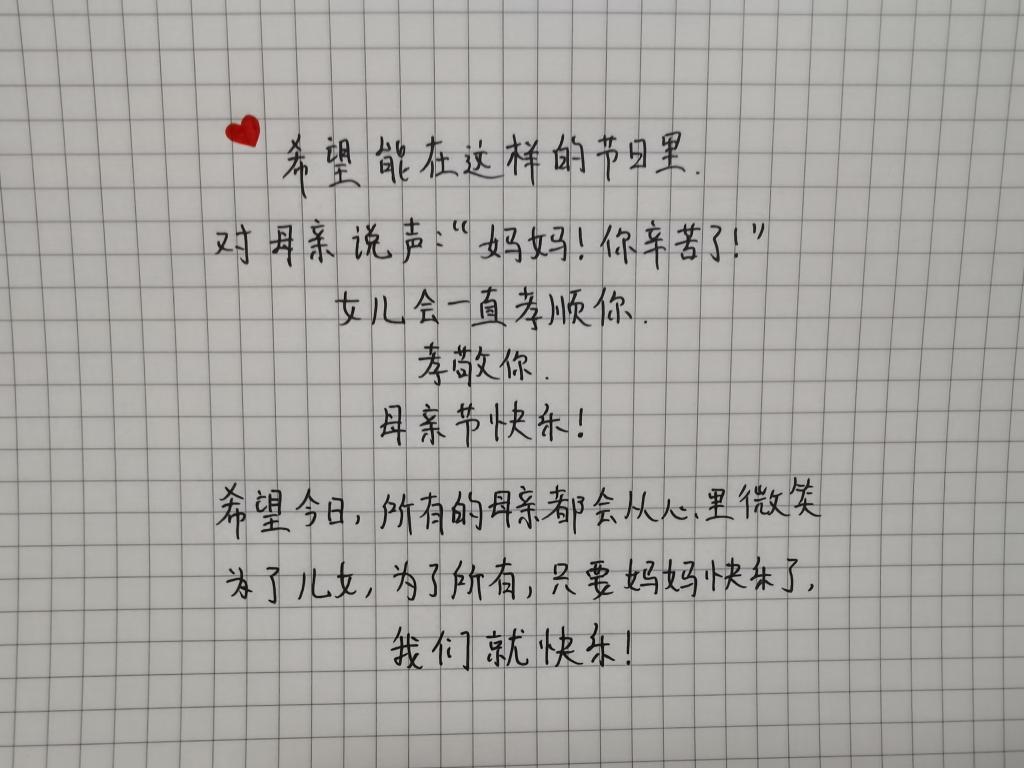 希望能在这样的节日里.
对母亲说声:“妈妈!你辛苦了!”
女儿会一直孝顺你.
孝敬你.
母亲节快乐!
希望今日,所有的母亲都会从心里微笑
为了儿女,为了所有,只要妈妈快乐了,
我们就快乐!